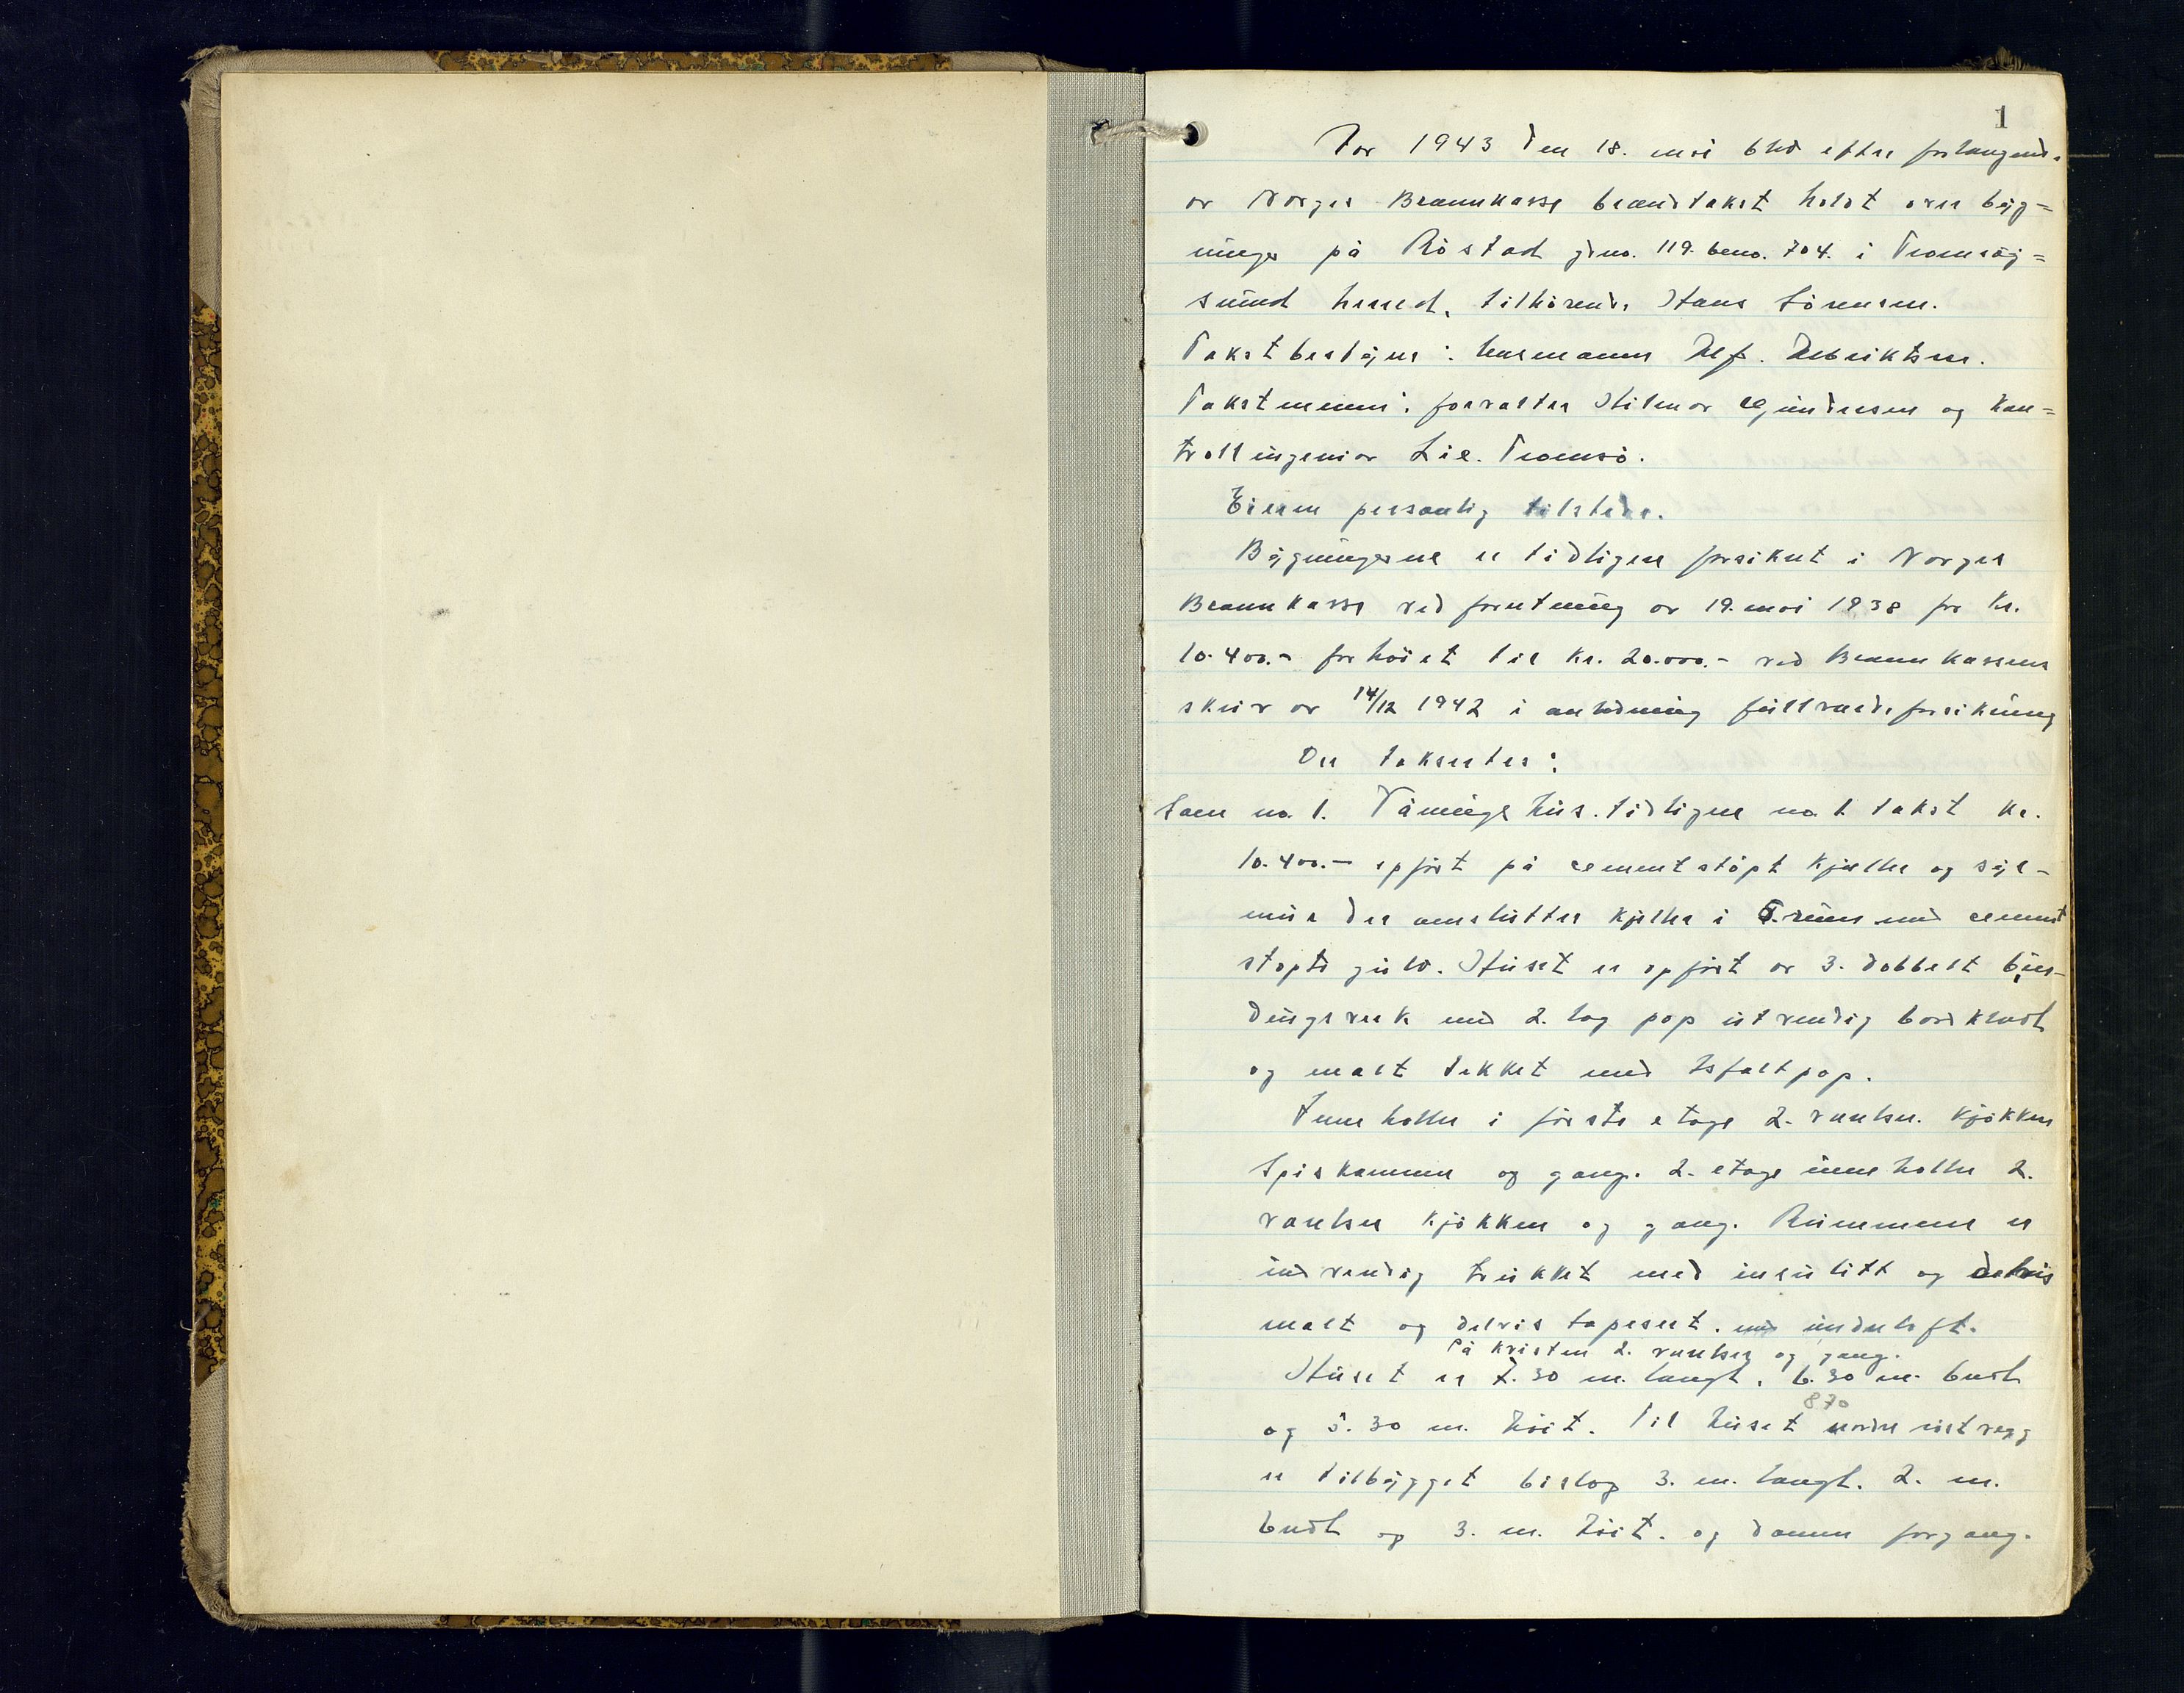 1
År 1943 den 18. mai blev efter forlangende
av Norges Brannkasse branntakst holdt over byg=
ninger på Röstad gno. 119. bno. 704. i Tromsöy=
sund herred, tilhörende Hans Sörensen.
Takstbestyrer: lensmann Alf. Albriktsen.
Takstmenn: forvalter Hilmar Gundersen og kon=
trollingeniör Lie. Tromsö.
Eieren personlig tilstede.
Bygningerne er tidligere forsikret i Norges
Brannkasse ved forretning av 19. mai 1938 for kr.
10.400.- forhöiet til kr. 20.000.- ved Brannkassens
skriv av 14/12 1942 i anledning fullverdiforsikring
Der takseres:
Som no. 1. Våningshus. tidligere no. 1 takst kr.
10.400.- opfört på cementstöpt kjeller og syl-
mur der omslutter kjeller i 5. rum med cement
stöpte gulv. Huset er opfört av 3. dobbelt bin-
dingsverk med 2. lag pap utvendig bordkledt
og malt tekket med Asfaltpap.
Inneholder i förste etage 2. værelser. kjökken
Spiskammer og gang. 2. etage inneholder 2.
værelser kjökken og gang. Rummene er
indvendig trukket med insulitt og delvis
malt og delvis tapesert. med underloft.
På kvisten 2. værelser og gang.
Huset er 7.30 m. langt, 6.30 m. bredt
870
og 5.30 m. höit. Til huset nordre vegg
er tilbygget bislag 3. m. langt. 2. m.
bredt og 3. m. höit. og danner forgang.